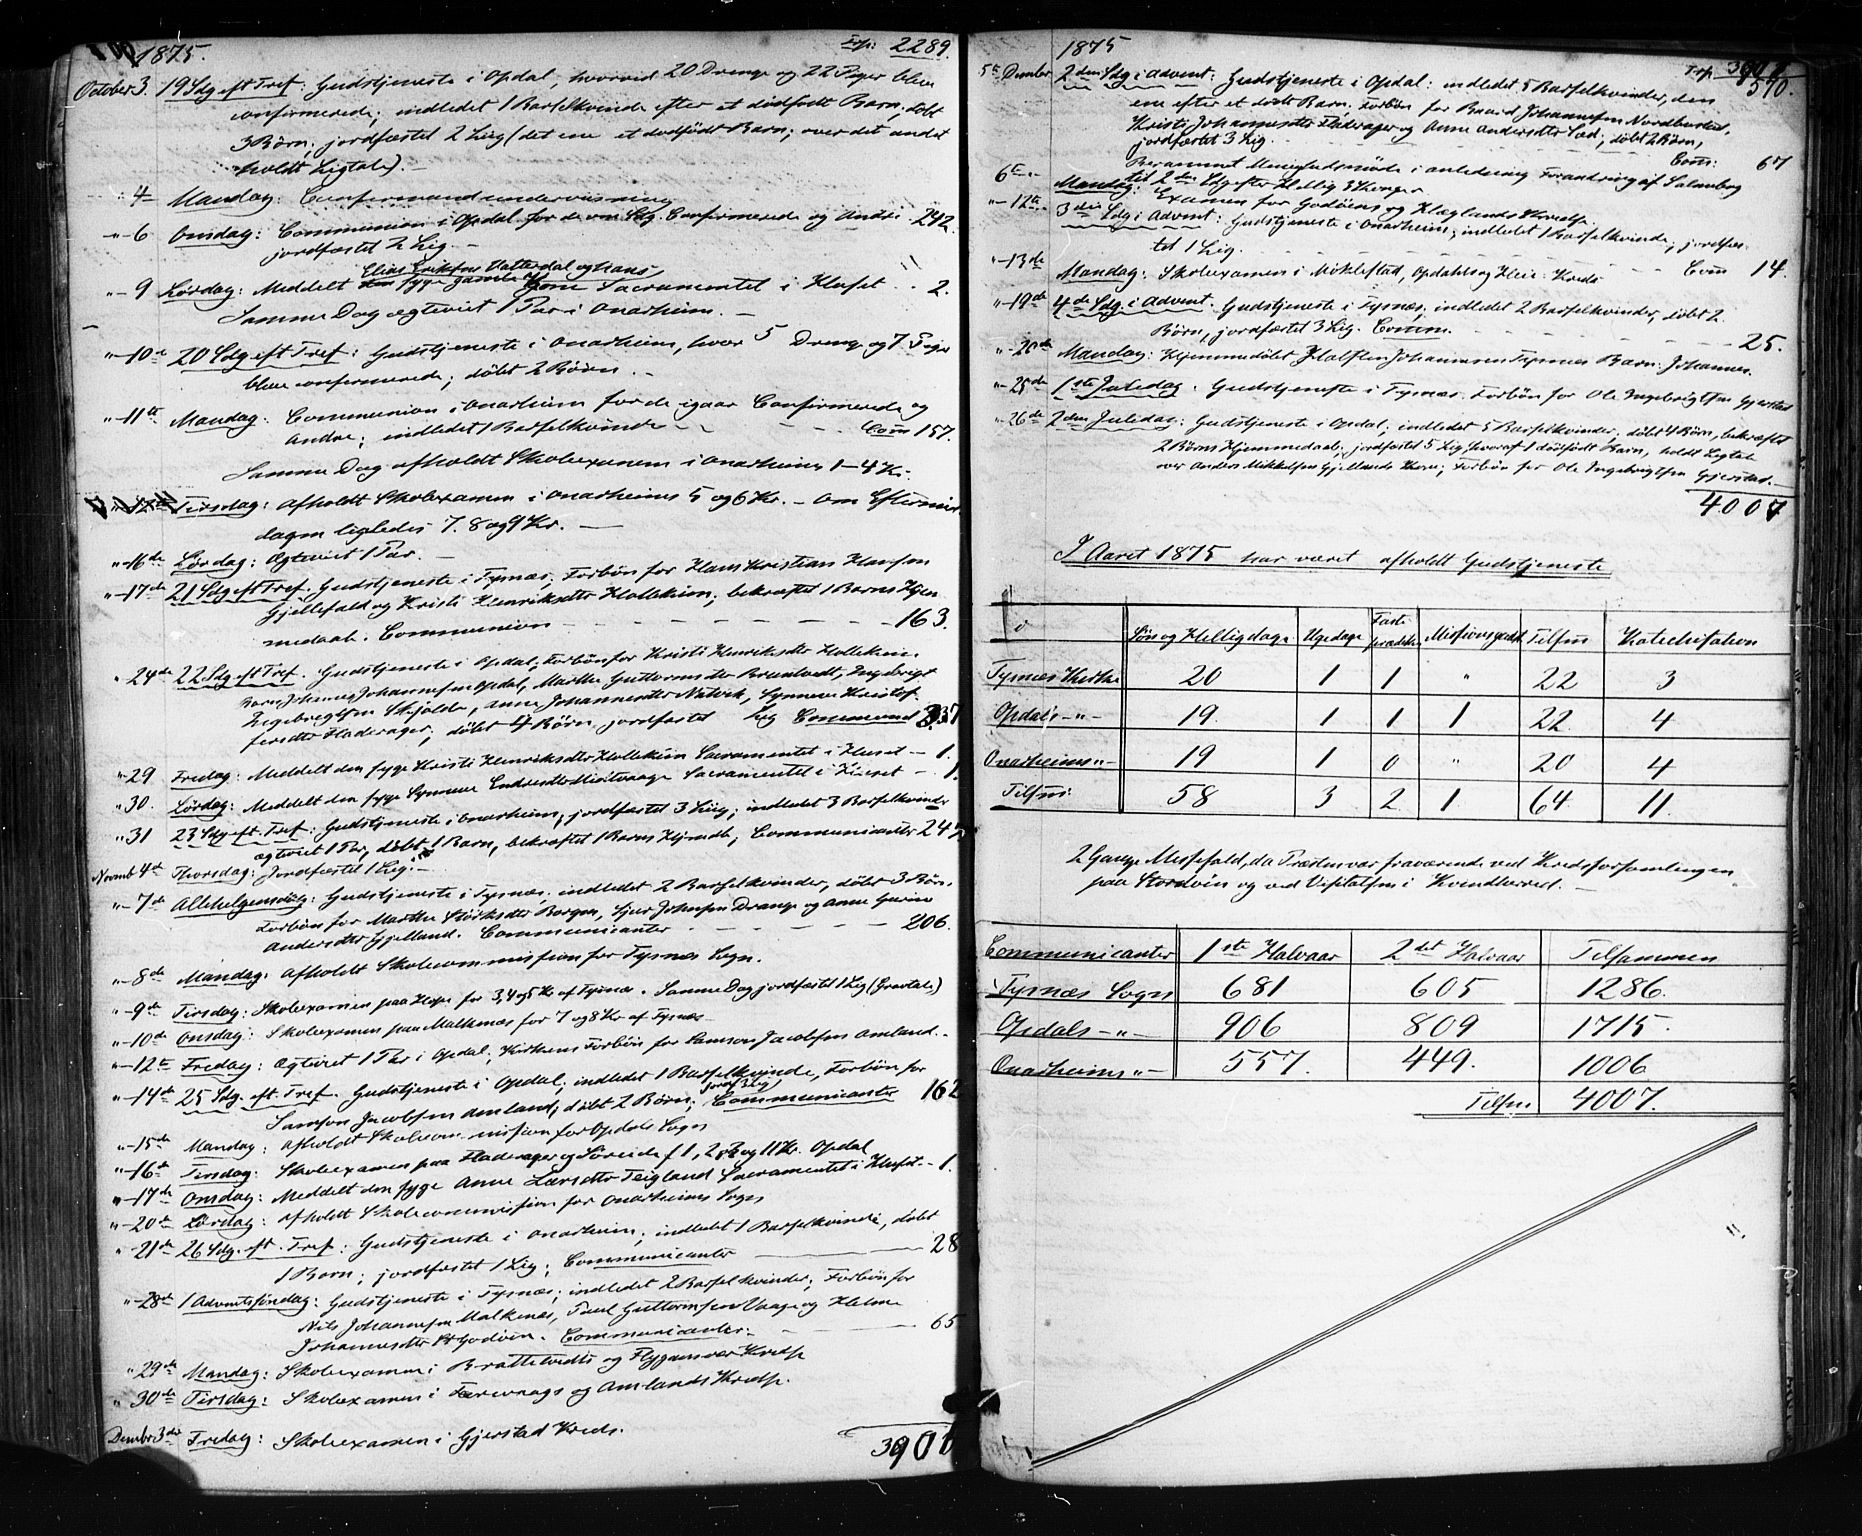 1875. Trsp: 2289.
October 3. 19 Sdg eft Tref: Gudstjeneste i Opdal, hvorved 20 Drenge og 22 Piger bleve
confirmerede; indledet 1 Barselkvinde efter et dødfødt Barn; døbt
3 Børn; jordfæstet 2 Lig (det ene et dødfødt Barn; over det andet
holdt Ligtale). —
" 4 Mandag: Confirmandundervisning
"– 6 Onsdag: Communion i Opdal for de om Sdg. Confirmerede og Andre 242.
jordfæstet 2 Lig. —
Elias Eriksen Vatterdal og Hans
"– 9 Lørdag: Meddelt den syge gamle Kone Sacramentet i Huset . . 2.
Samme Dag ægteviet 1 Par i Onarheim. —
"–10de 20 Sdg eft Tref: Gudstjeneste i Onarheim, hvor 5 Drenge og 7 Piger
bleve confirmerede; døbt 2 Børn. —
"–11te Mandag: Communion i Onarheim for de igaar Confirmerede og
Andre; indledet 1 Barselkvinde – – – Com 157.
Samme Dag afholdt Skolexamen i Onarheims 1–4 Kr.
"–12te Tirsdag: Afholdt Skolexamen i Onarheims 5 og 6 Kr. – Om Eftermid-
dagen ligeledes 7. 8 og 9 Kr. —
"–16de Lørdag: Ægteviet 1 Par. —
"–17de 21 Sdg eft Tref. Gudstjeneste i Tysnæs; Forbøn for Hans Kristian Hansen
Gjellefald og Kristi Henriksdtr Hollekim; bekræftet 1 Barns Hjem-
medaab. Communion – – – – – – 163.
" 24de 22 Sdg eft Tref. Gudstjeneste i Opdal; Forbøn for Kristi Henriksdtr Hollekim
Johannesen Opdal, Marthe Guttormsdtr Brandvedt, Ingebrigt
Ingebrigtsen Skjolde, Anna Johannesdtr Natvik, Synneve Kristof-
fersdtr Hladerager; døbt 4 Børn, jordfæstet Lig Communic 337
"–29 Fredag: Meddelt den syge Kristi Henriksdtr Hollekim Sacramentet i Huset – 1.
"30. Lørdag: Meddelt den syge Synneve Endresdtr Hisitvaage Sacramentet i Huset – 1.
"31 23 Sdg eft. Tref: Gudstjeneste i Onarheim, jordfæstet 3 Lig; indledet 3 Barselkvinder
ægteviet 1 Par, døbt 1 Barn, bekræftet 1 Barns Hjmdb; Communicanter 247
Novmb 4de Thorsdag: Jordfæstet 1 Lig. —
"–7de Allehelgensdag: Gudstjeneste i Tysnæs; indledet 2 Barselkvinder, døbt 3 Børn.
Forbøn for Marthe Størksdtr Borgen, Sjur Johnsen Drange og Anne Gurine
Andersdtr Gjelland. Communicanter – – – – 206.
"–8de Mandag: Afholdt Skolecommission for Tysnæs Sogn.
"–9de Tirsdag: Skolexamen paa Heie for 3, 4 og 5 Kr af Tysnæs. Samme Dag jordfæstet 1 Lig (Gravtale)
"–10de Onsdag: Skolexamen paa Malkenæs for 7 og 8 Kr af Tysnæs
"–12te Fredag: Ægteviet 1 Par i Opdal; Kirkens Forbøn for Samson Jacobsen Amland. –
"–14de 25 Sdg. eft. Tref. Gudstjeneste i Opdal; indledet 1 Barselkvinde, Forbøn for
jordf 3 Lig
Samson Jacobsen Amland; døbt 2 Børn; Communicanter 162
"–15de Mandag: Afholdt Skolecommission for Opdals Sogn
"–16de Tirsdag: Skolexamen paa Hladerager og Søreide f 1, 2, 3 og 11 Kr. Opdal
"–17de Onsdag: Meddelt den syge Anne Larsdtr Teigland Sacramentet i Huset. – 1.
"–20de Lørdag: Afholdt Skolecommission for Onarheims Sogn
"–21de 26 Sdg. eft. Tref: Gudstjeneste i Onarheim; indledet 1 Barselkvinde, døbt
1 Barn; jordfæstet 1 Lig; Communicanter – 28
"–28de 1 Adventssøndag: Gudstjeneste i Tysnæs; indledet 2 Barselkvinder; Forbøn for
Nils Johannesen Malkenæs, Paul Guttormsen Vaage og Helene
Johannesdtr Godøen. Communicanter: – 65
"29de Mandag: Skolexamen i Brattetvedts og Flygansvær Kredse
"30de Tirsdag: Skolexamen i Færevaags og Amlands Kredse.
Decmbr 3die Fredag: Skolexamen i Gjerstad Kreds.
390
1875
Trsp
5te Dcmbr 2den Sdg i Advent: Gudstjeneste i Opdal: indledet 5 Barselkvinder, den
ene efter et dødt Barn; Forbøn for Baard Johannessen Nordbustad,
Kristi Johannesdtr Hladerager og Anne Andersdtr Lad; døbt 2 Børn,
jordfæstet 3 Lig. Com: 67
Berammet Menighedsmøde i anledning Forandring af Salmebog
til 2den Sdg efter Hellig 3 Konger
6te Mandag: Examen for Godøens og Haaglands Kredse.
"–12te 3die Sdg i Advent: Gudstjeneste i Onarheim; indledet 1 Barselkvinde; jordfæs-
tet 1 Lig. – – – – Com 14.
"–13de Mandag: Skolexamen i Miklestad, Opdahls og Heie Kreds
"–19de 4de Sdg i Advent. Gudstjeneste i Tysnæs, indledet 2 Barselkvinder, døbt 2
Børn, jordfæstet 3 Lig. Comm. – – – – 25.
"–20de Mandag: Hjemmedøbt Halsten Johannesen Tysnæs Barn: Johannes.
"–25de 1ste Juledag. Gudstjeneste i Tysnæs. Forbøn for Ole Ingebrigtsen Gjerstad
"–26de 2den Juledag: Gudstjeneste i Opdal; indledet 5 Barselkvinder, døbt 4 Børn, bekræftet
2 Børns Hjemmedaab; jordfæstet 5 Lig, hvoraf 1 dødfødt Barn, holdt Ligtale
over Anders Mikkelsen Gjellands Kone; Forbøn for Ole Ingebrigtsen Gjerstad. —
4007
I Aaret 1875 har været afholdt Gudstjeneste
Søn og Helligdage Ugedage Faste prædiken Missionsgudst Tilsm Katechisation
Tysnæs Kirke 20 1 1 " 22 3
Opdals –"– 19 1 1 1 22. 4
Onarheims "– 19 1 0 " 20 4
Tilsm: 58 3 2 1 64 11.
2 Gange Messefald, da Præsten var fraværende ved Kredsforsamlingen
paa Stordøen og ved Visitatsen i Kvindherred. —
Communicanter 1ste Halvaar 2det Halvaar Tilsammen
Tysnæs Sogn 681 605 1286.
Opdals –"– 906 809 1715.
Onarheims "– 557. 449. 1006
Tilsm 4007.